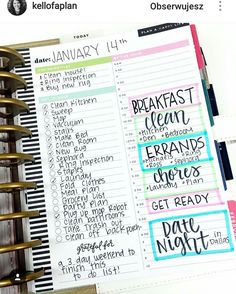 kellofaplan
Obserwujesz
TODAY
date: JANUARY 14th
Clean House!
Ring inspection
Buy new rug
Clean Kitchen
Sweep
Mop
Vacuum
Stairs
Make Bed
Clean Room
New Rug
Sephora
Ring Inspection
Staples
Laundry
Fold Clothes
Meal Plan
Grocery List
Baking Plan
Pick up mop Robot
Clean bathrooms
Take trash out
Clean off back patio
grateful for
a 3 day weekend to
finish this
to do list!
BREAKFAST
clean
• Kitchen
• Den • Bedroom
ERRANDS
• Ross • Sephora
chores
• Laundry • Plan
GET READY
Date
Night in Dallas